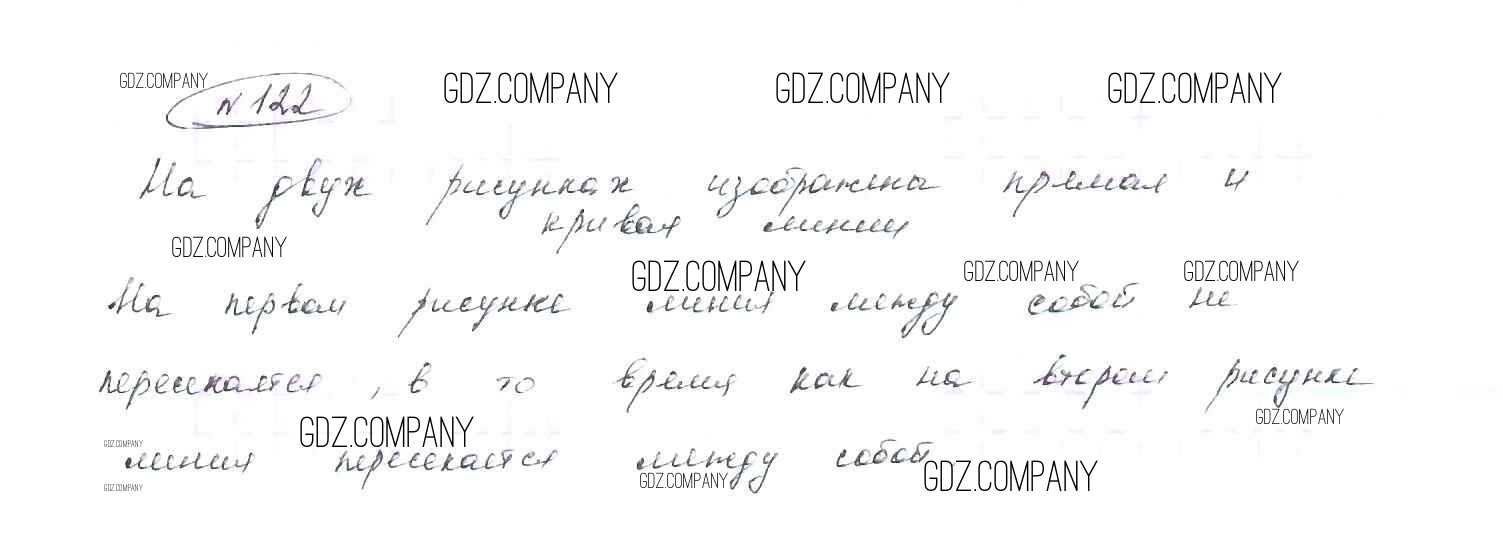 GDZ.COMPANY GDZ.COMPANY GDZ.COMPANY GDZ.COMPANY
№122
На двух рисунках изображены прямая и
кривая линии
GDZ.COMPANY
GDZ.COMPANY GDZ.COMPANY GDZ.COMPANY
На первом рисунке линия между собой не
пересекается, в то время как на втором рисунке
GDZ.COMPANY GDZ.COMPANY GDZ.COMPANY
линия пересекается между собой
GDZ.COMPANY GDZ.COMPANY GDZ.COMPANY